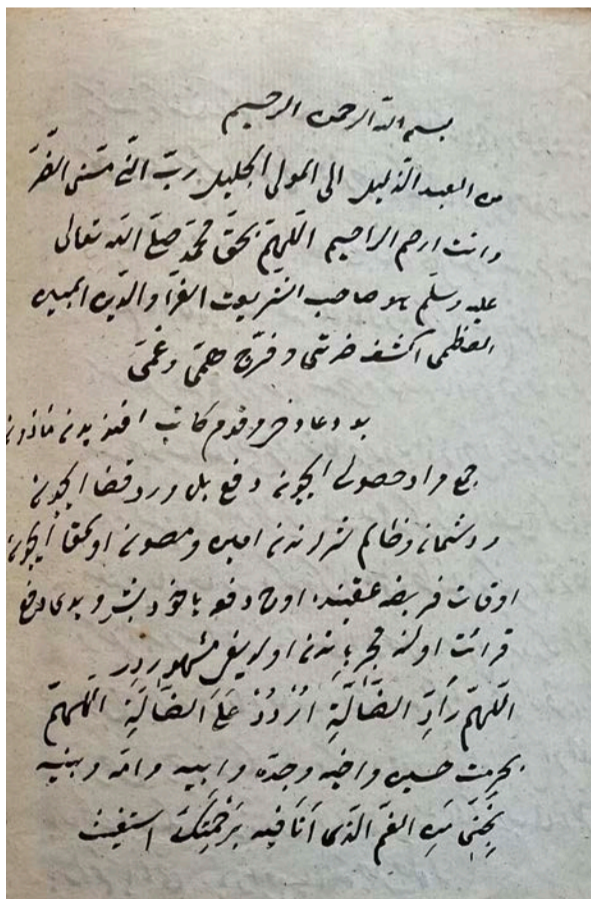 بسم الله الرحمن الرحيم
من العبد الذليل الى المولى الجليل ربّ انّى مسّنى الضرّ
وانت ارحم الراحمين اللّهمّ بحقّ محمّد صلّى الله تعالى
عليه وسلّم صاحب الشريعت الغرّا والدّين المبين
العظمى اكشف ضرّتى وفرّج همّى وغمّى
بو دعا مخدومم كاتب افندينك مأذونى
جمع مراد حصولى ايچون دفع بلا ورد قضا ايچون
ودشمان وظالم شرلرندن امين ومصون اولمق ايچون
اوقات فريضه عقبنده اوچ دفعه ياخود بش ويدى دفع
قرائت اولنه مجرّباتدن اولديغى مشهوردر
اللّهمّ رَادِّ الضَّالَّةِ اُرْدُدْ عَلَىَّ الضَّالَّةِ اللّهمّ
بحرمت حسين واخيه وجدّه وابيه وامّه وبنيه
نَجِّنِى مِنَ الغمّ الّذى اَنَا فيه بِرَحْمَتِكَ استغيث